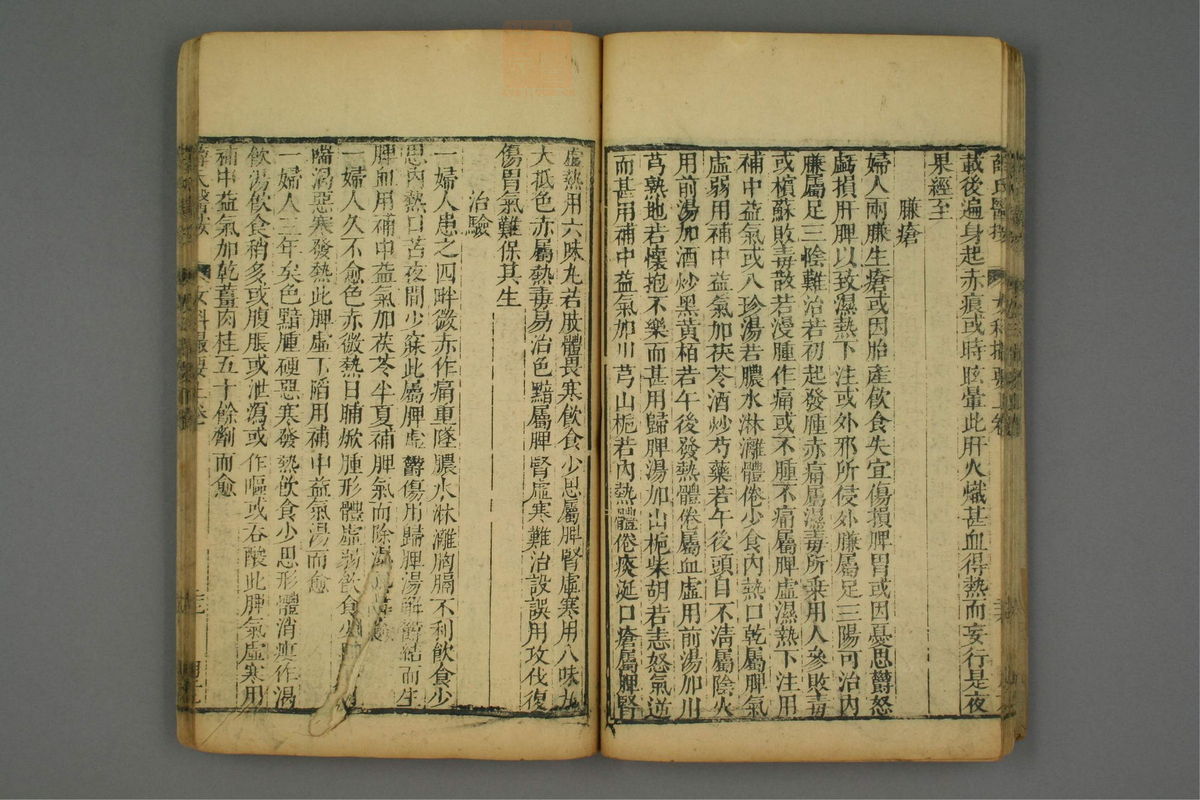 載後遍身起赤痕或時眩暈此肝火熾甚血得熱而妄行是夜
果經至
臁瘡
婦人兩臁生瘡或因胎產飲食失宜傷損脾胃或因憂思鬱怒
虧損肝脾以致濕熱下注或外邪所侵外臁屬足三陽可治內
臁屬足三陰難治若初起發腫赤痛屬濕毒所乘用人參敗毒
或檳蘇敗毒散若漫腫作痛或不腫不痛屬脾虛濕熱下注用
補中益氣或八珍湯若膿水淋灕體倦少食內熱口乾屬脾氣
虛弱用補中益氣加茯苓酒炒芍藥若午後頭目不清屬陰火
用前湯加酒炒黑黃栢若午後發熱體倦屬血虛用前湯加川
芎熟地若懷抱不樂而甚用歸脾湯加山梔柴胡若恚怒氣逆
而甚用補中益氣加川芎山梔若內熱體倦痰涎口瘡屬脾腎
虛熱用六味丸若肢體畏寒飲食少思屬脾腎虛寒用八味丸
大抵色赤屬熱毒易治色黯屬脾腎虛寒難治設誤用攻伐復
傷胃氣難保其生
治驗
一婦人患之四畔微赤作痛重墜膿水淋灕胸膈不利飲食少
思內熱口苦夜間少寐此屬脾虛鬱傷用歸脾湯解鬱結而生
脾血用補中益氣加茯苓半夏補脾氣而除濕
一婦人久不愈色赤微熱日晡焮腫形體虛弱飲食少
喘渴惡寒發熱此脾虛下陷用補中益氣湯而愈
一婦人三年矣色黯腫硬惡寒發熱飲食少思形體消瘦作渴
飲湯飲食稍多或腹脹或泄瀉或作嘔或吞酸此脾氣虛寒用
補中益氣加乾薑肉桂五十餘劑而愈